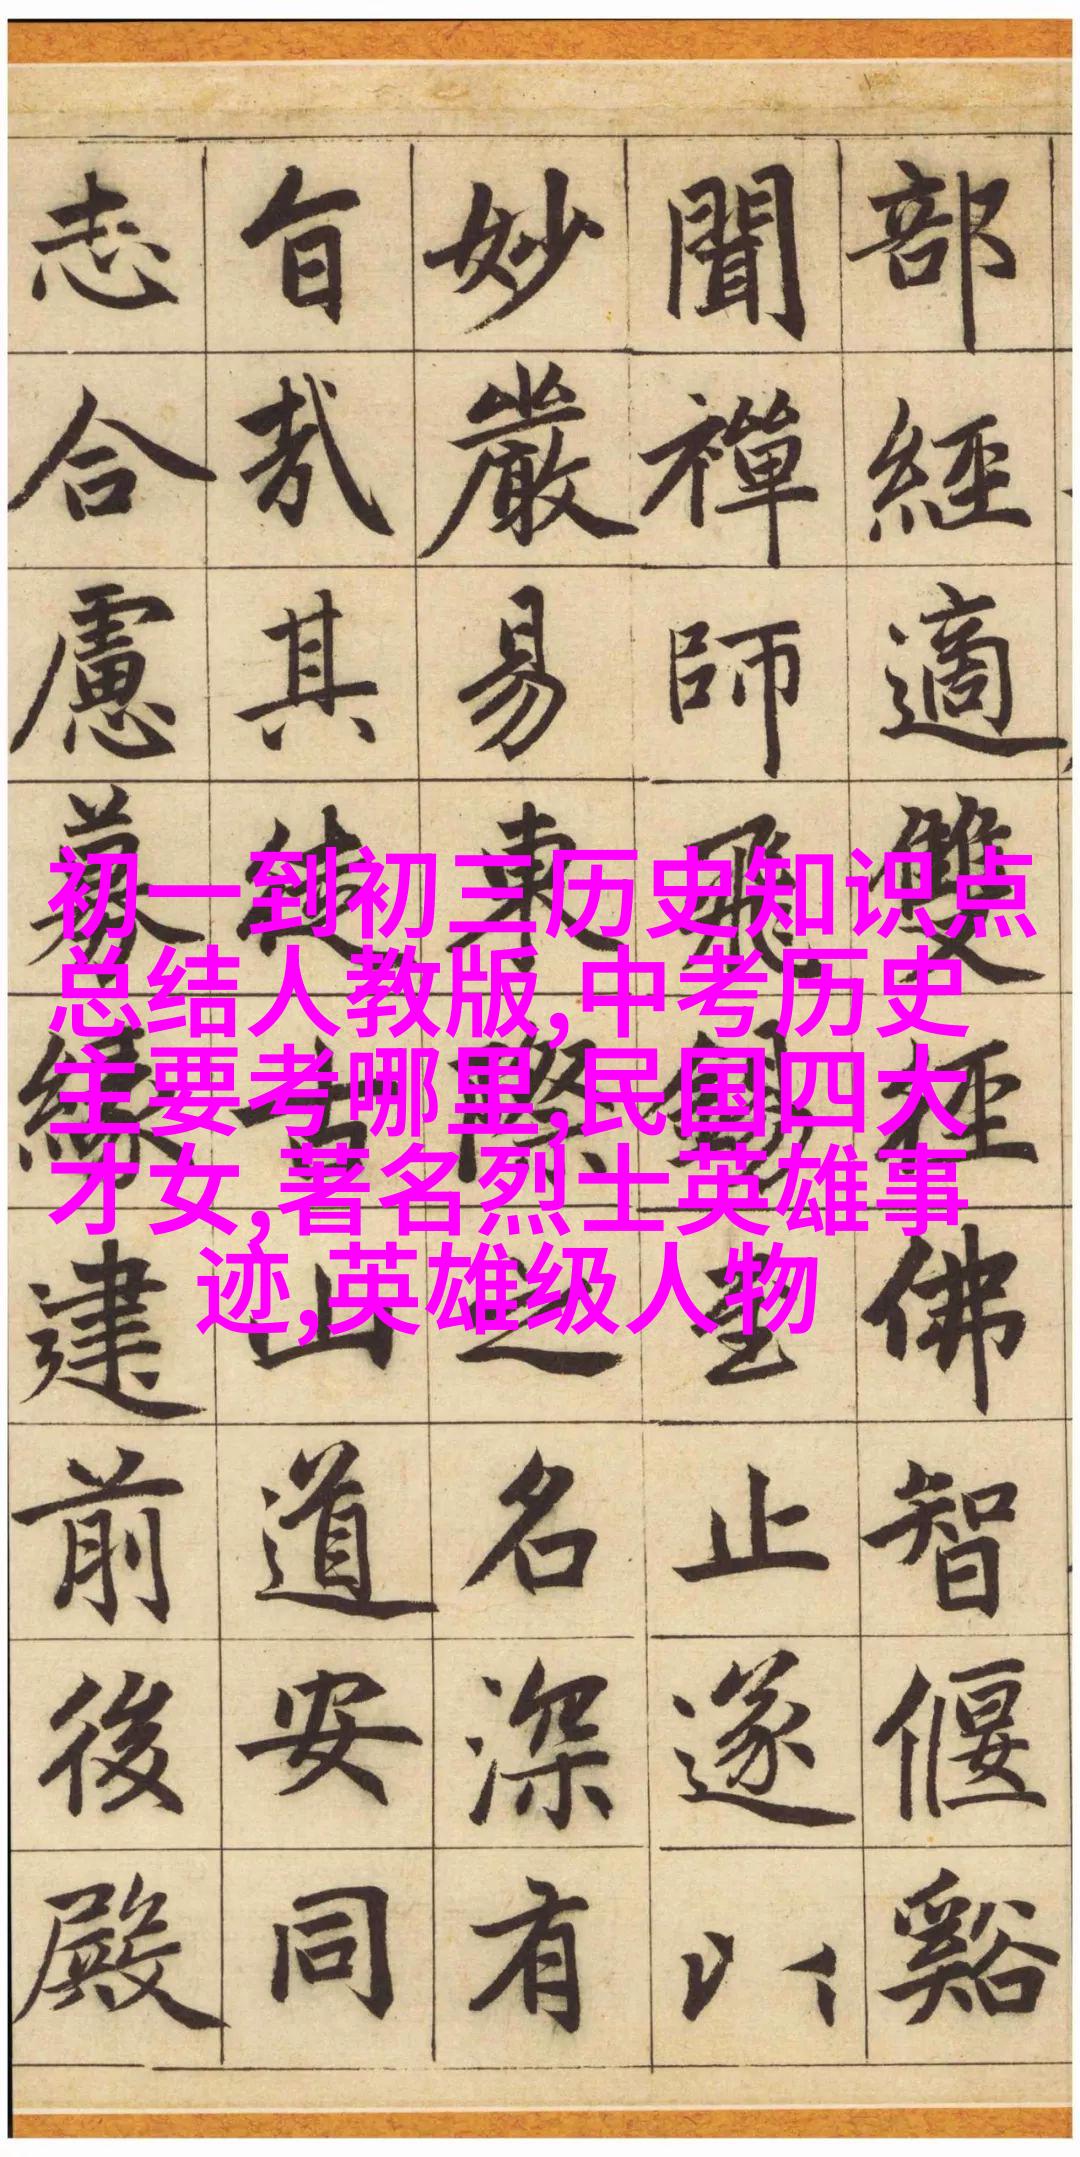 部經適雙徑佛智偃谿
聞禪師飛錫至止遂以
妙嚴易東際之名深有
旨哉其徒古山道安同
志合慮募緣建前後殿
初一到初三历史知识点
总结人教版,中考历史
主要考哪里,民国四大
才女,著名烈士英雄事
迹,英雄级人物